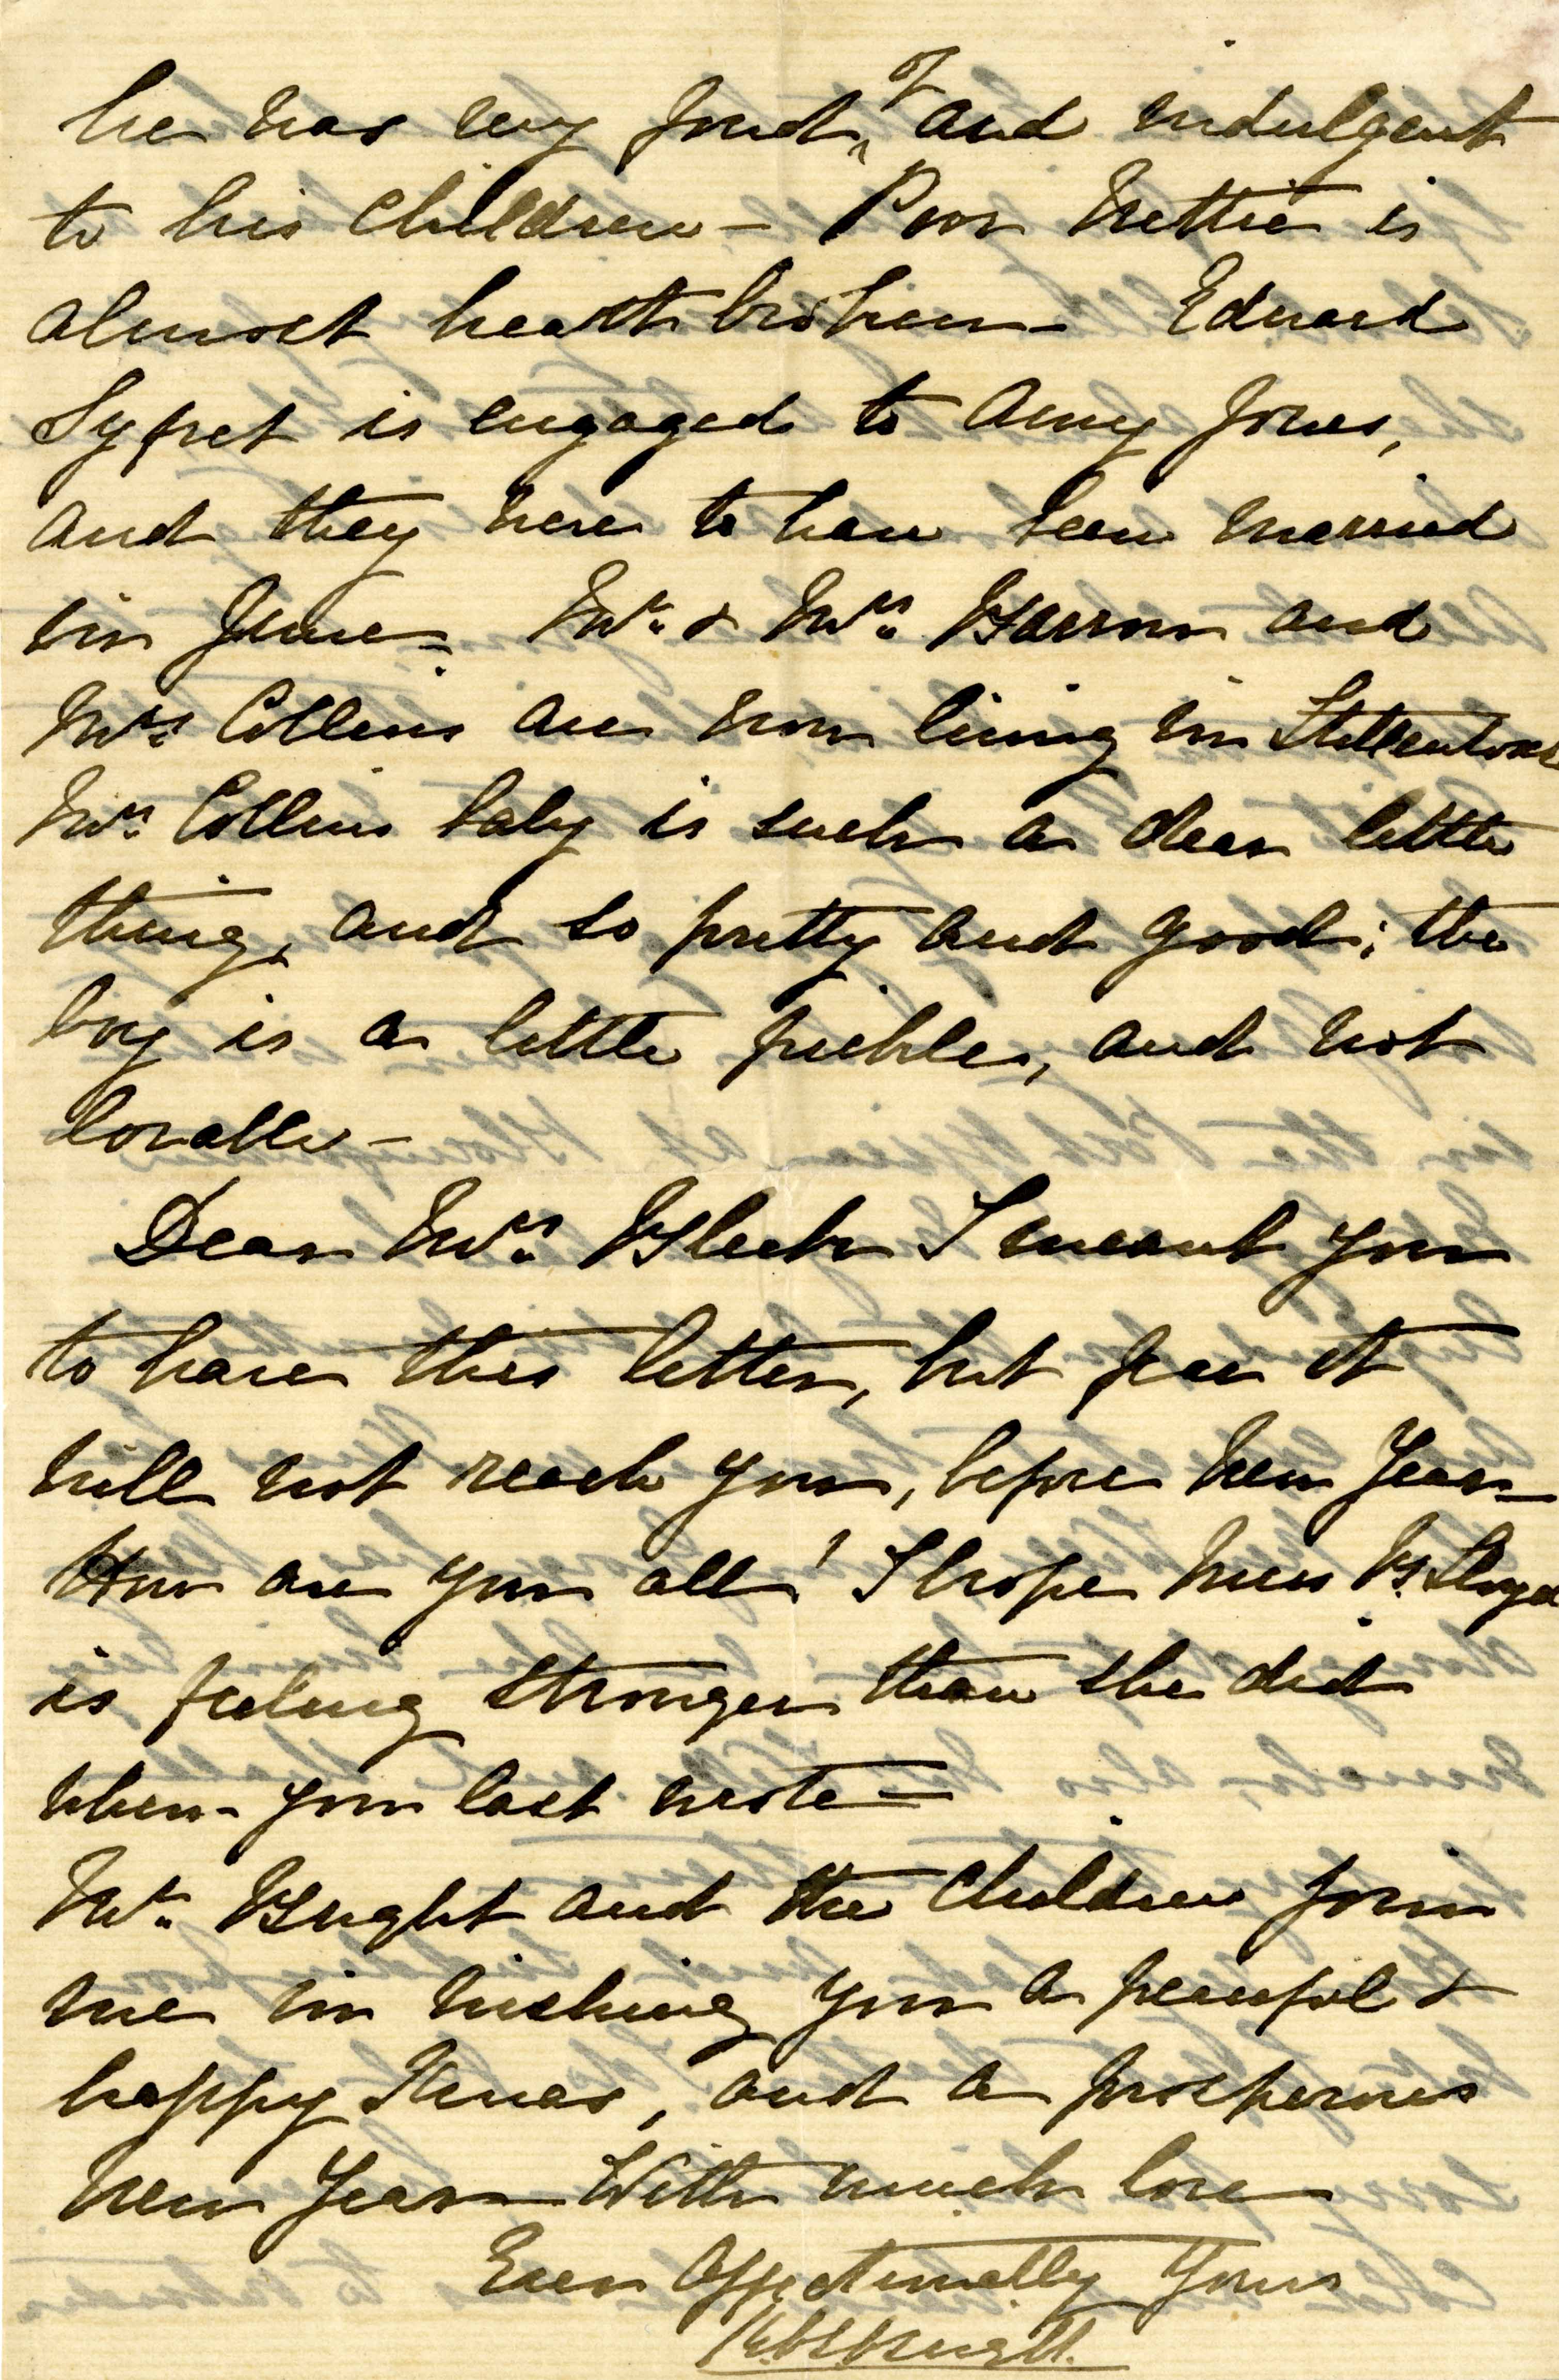 he was very fond, of and indulgent
to his children – Poor Nettie is
almost heart broken – Edward
Sypret is engaged to Amy Jones,
and they were to have been married
in June – Mr. & Mrs. Barrow and
Mrs. Collins are now living in
Mrs. Collins baby is such a dear little
thing, and so pretty and good; the
boy is a little pickle, and not
lovable –
Dear Mrs. Bleek I meant you
to have this letter, but fear it
will not reach you, before New Year –
How are you all! I hope Miss B. Lloyd
is feeling stronger than she did
when you last wrote –
Mr. Bright and the children join
me in wishing you a peaceful &
happy Xmas, and a prosperous
New Year – With much love
Ever Affectionately Yours
Bright.